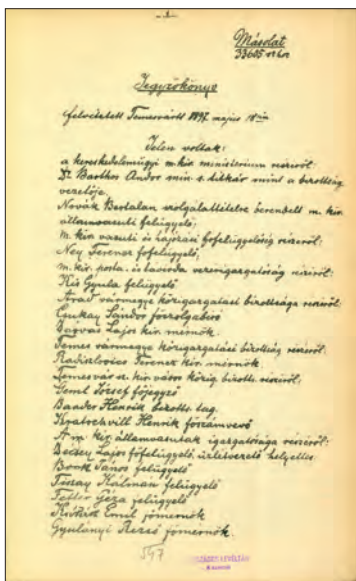 Másolat
Jegyzőkönyv
felvétetett Temesvárott 1897 május
Jelen voltak:
a kereskedelemügyi m. kir. ministerium részéről:
Dr. Barthos Andor min. s. titkár mint a bizottság
vezetője
Novák Bertalan szolgálattételre berendelt m. kir.
államvasuti felügyelő;
m. kir. vasuti és hajózási főfelügyelőség részéről:
Ney Ferencz főfelügyelő;
m. kir. posta és távirda vezérigazgatóság részéről:
Kis Gyula felügyelő
Arad vármegye közigazgatási bizottsága részéről:
Sándor főszolgabíró
Lajos kir. mérnök.
Temes vármegye közigazgatási bizottság részéről:
Ferencz kir. mérnök.
Temesvár sz. kir. város közig. bizotts. részéről:
Geml József főjegyző
Baader Henrik bizotts. tag.
Kratochvill Henrik főszámvevő
A m. kir. államvasutak igazgatósága részéről:
Lajos főfelügyelő, üzletvezető helyettes
János felügyelő
Kálmán felügyelő
Géza felügyelő
Emil főmérnök
Gyulányi Rezső főmérnök.
547